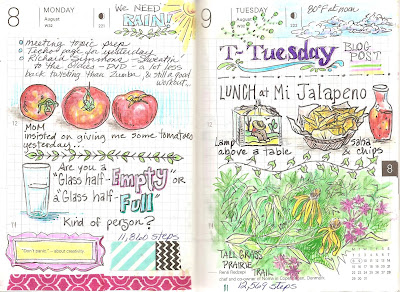 8 MONDAY
August
W32
221
WE NEED
RAIN!
meeting topic prep
Techo page for yesterday
Richard Simmons - Sweatin'
to the Oldies - DVD - a lot less
back twisting than Zumba, & still a good
workout...
MoM
insisted on giving me some tomatoes
yesterday...
Are you a
"Glass half-Empty" or
a "Glass half-
Full"
Kind of person?
11,860 steps
"Don't panic." – about creativity
9 TUESDAY
August
W32
222
80° at noon
T-Tuesday
BLOG
POST
LUNCH at Mi Jalapeno
Lamp
above a table
salsa
& chips
8
TALL GRASS
PRAIRIE
TRAIL
René Redzepi
chef and co-owner of Noma in Copenhagen, Denmark
12,569 steps